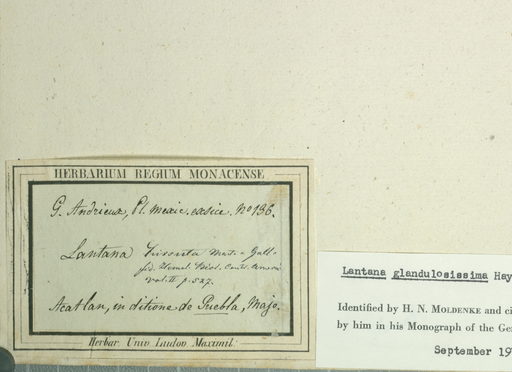 HERBARIUM REGIUM MONACENSE
G. Andrieux, Pl. Mexic. exsicc. No 136.
Lantana hirsuta Mart. & Gall.
fid. Hemsl. Biol. Centr. Amer.
vol. II p. 527.
Acatlan, in ditione de Puebla, Majo.
Herbar. Univ. Ludov. Maximil.
Lantana glandulosissima Hay
Identified by H. N. MOLDENKE and ci
by him in his Monograph of the Ge
September 19